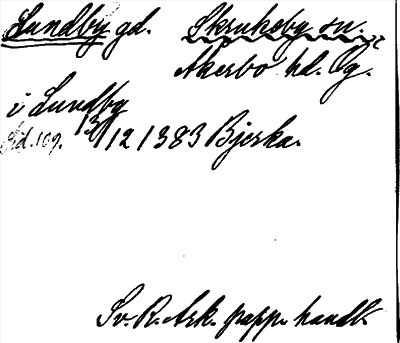 Lundby gd. Skruksby sn.
Åkerbo hd. Ög.
i Lundby
Lid. 109. 13/12 1383 Bjerka.
Sv. R. Ark. papp. handl.